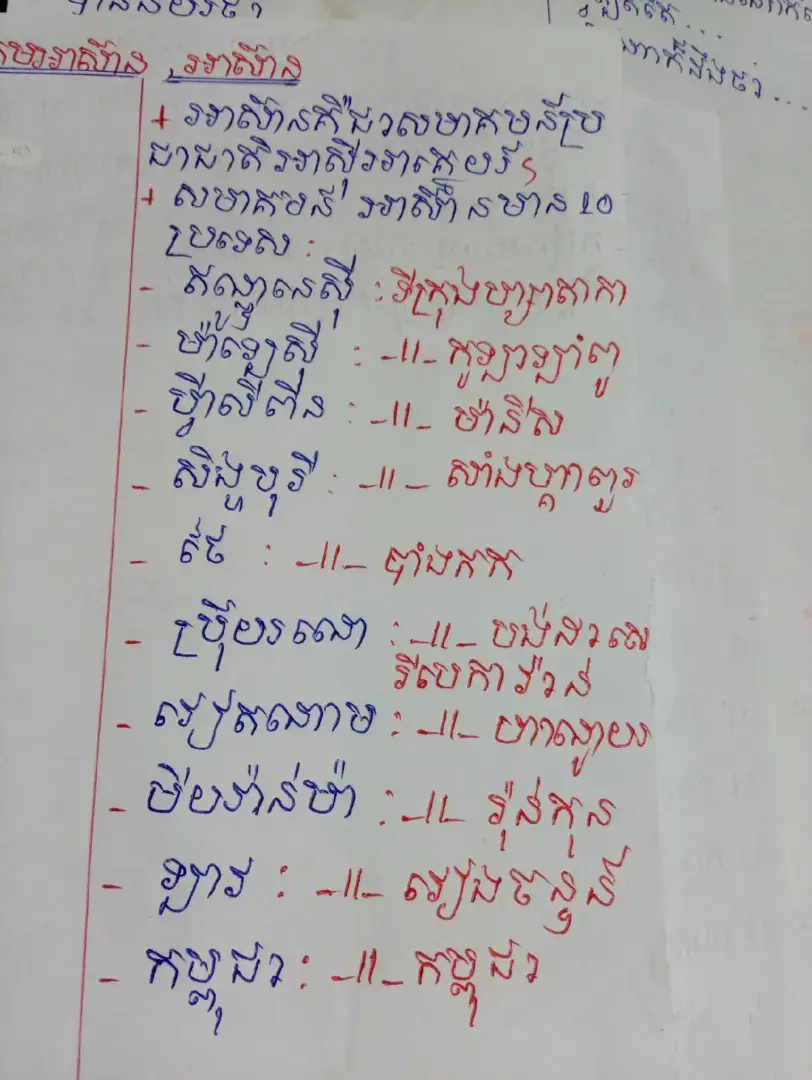 អាស៊ាន
+ អាស៊ានគឺជាសមាគមន៍ប្រ
ជាជាតិអាស៊ីអាគ្នេយ៍
+ សមាគមន៍ អាស៊ានមាន 10
ប្រទេស :
- ឥណ្ឌូនេស៊ី : ទីក្រុងហ្សាកាតា
- ម៉ាឡេស៊ី : -॥- កូឡាឡាំពួ
- ហ្វីលីពីន : -॥- ម៉ានីល
- សិង្ហបុរី : -॥- សាំងហ្គាពួរ
- ថៃ : -॥- បាំងកក
- ប្រ៊ុយណេ : -॥- បង់ដាសេ
រីបេកាវ៉ាន់
- វៀតណាម : -॥- ហាណូយ
- មីយ៉ាន់ម៉ា : -॥- រ៉ុងហ្គូន
- ឡាវ : -॥- វៀងចន្ទន៍
- កម្ពុជា : -॥- កម្ពុជា